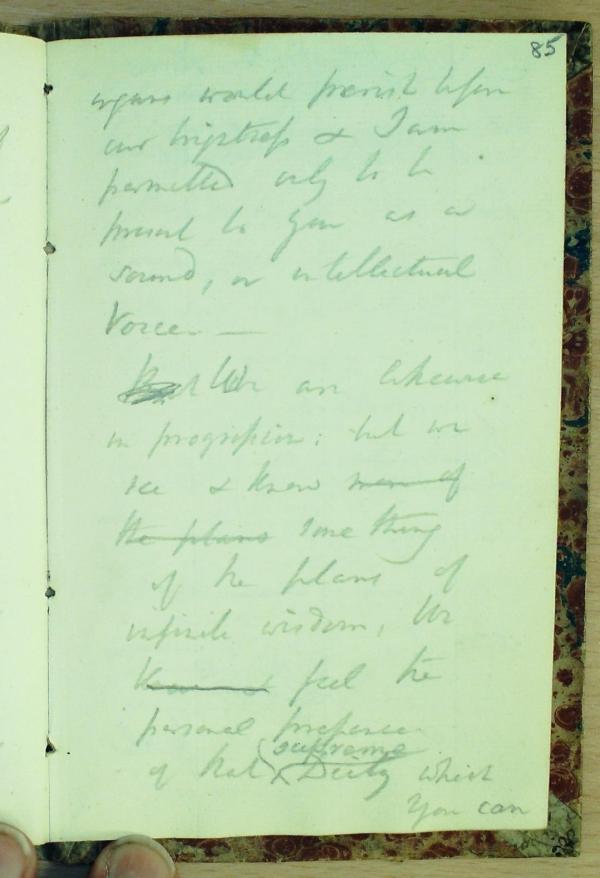 85
organs would perish before
our brightness & I am
permitted only to be
present to you as a
sound, or intellectual
Voice. —
We are likewise
in progression: but we
see & know more of
the plans some thing
of the plans of
infinite wisdom, We
feel the
personal presence
of that supreme Deity which
You can